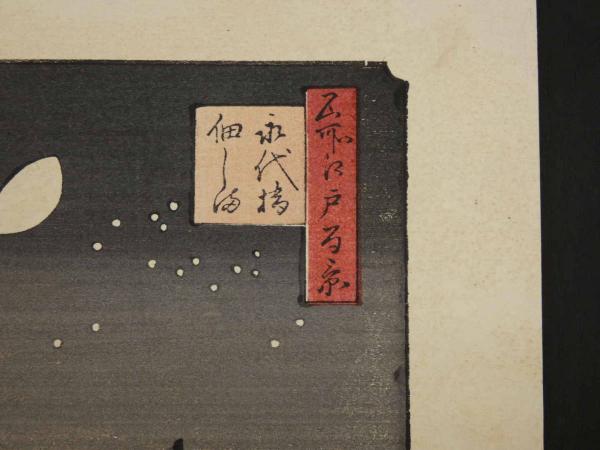 名所江戸百景
永代橋
佃しま